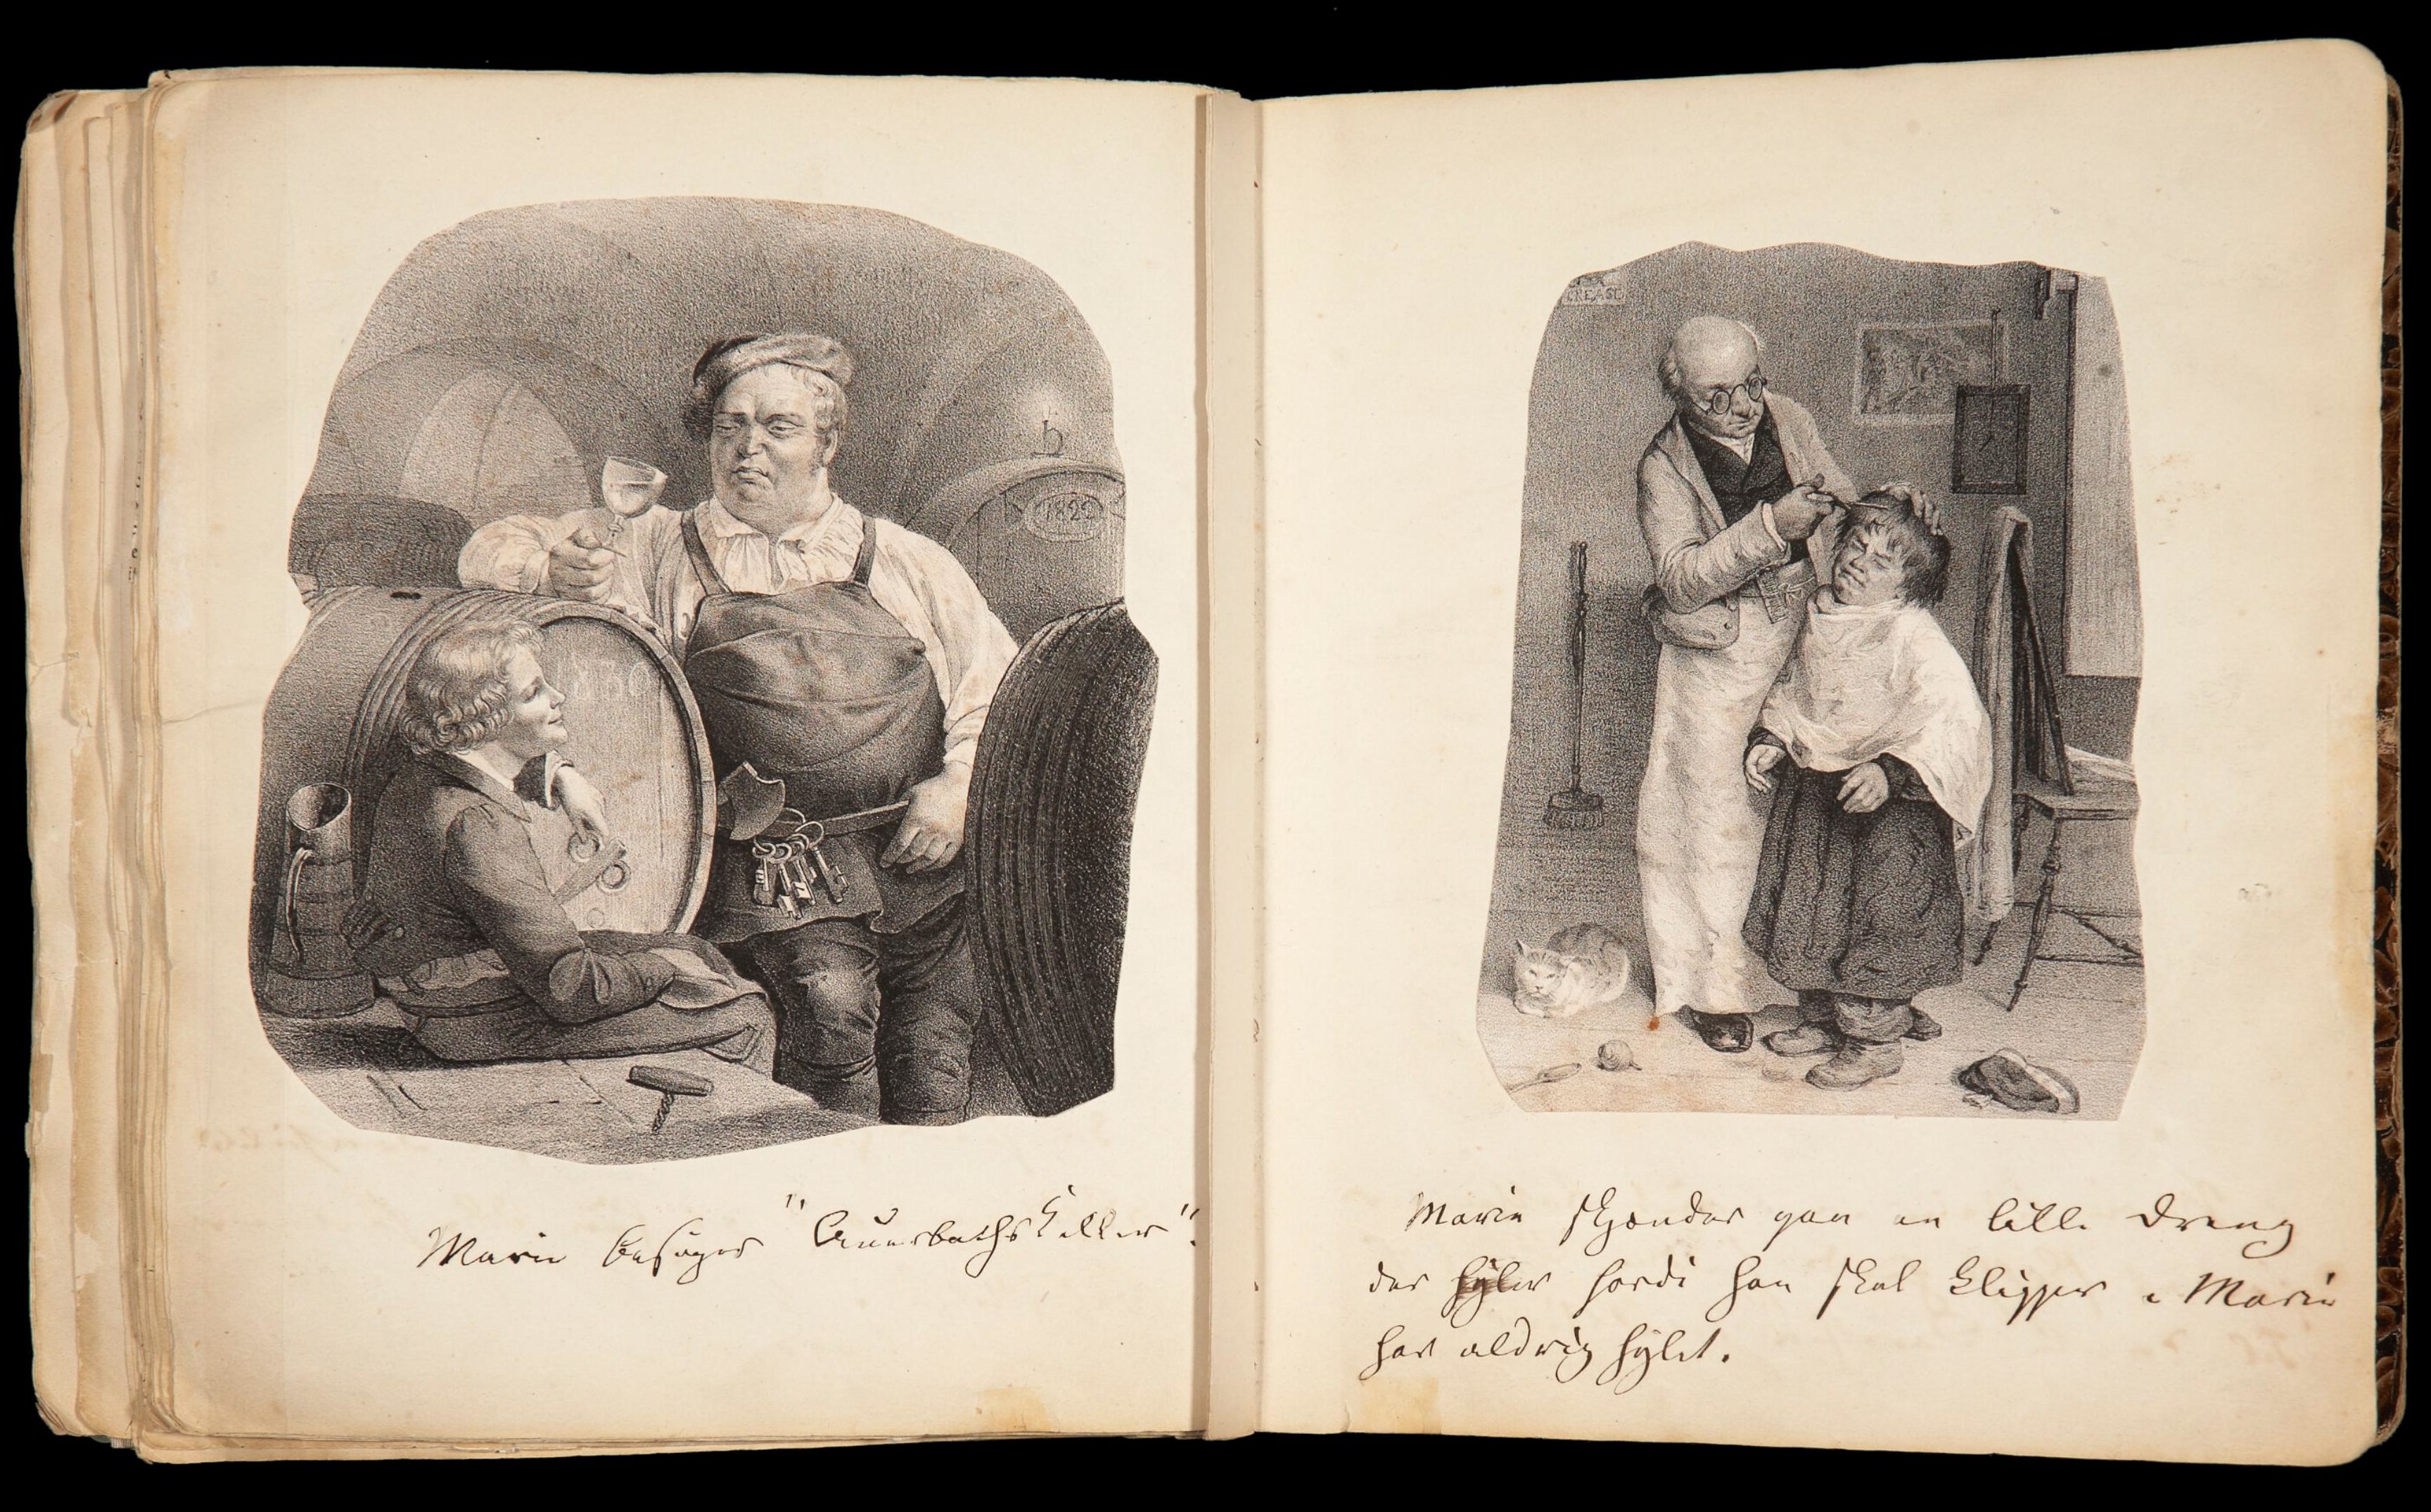 1822
1830
Marie besøger "Auerbachs Keller".
CREASD
Marie skjænder paa en lille Dreng
der hyler fordi han skal klippes, Marie
har aldrig hylet.